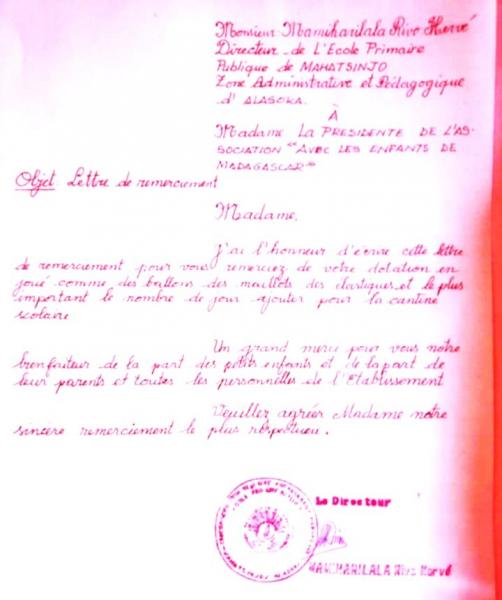 Monsieur Mamiharilala Rivo Hervé
Directeur de L'Ecole Primaire
Publique de MAHATSINJO
Zone Administrative et Pédagogique
d'ALASORA
À
Madame LA PRESIDENTE DE L'AS-
SOCIATION "AVEC LES ENFANTS DE
MADAGASCAR"
Objet Lettre de remerciement
Madame,
J'ai l'honneur d'écrire cette lettre
de remerciement pour vous remerciez de votre dotation en
joué comme des ballons des maillots des élastiques et le plus
important le nombre de jour ajouter pour la cantine
scolaire
Un grand merci pour vous notre
bienfaiteur de la part des petits enfants et de la part de
leur parents et toutes les personnelles de l'Etablissement
Veuillez agréer Madame notre
sincère remerciement le plus respectueu.
Le Directeur
MAMIHARILALA Rivo Hervé